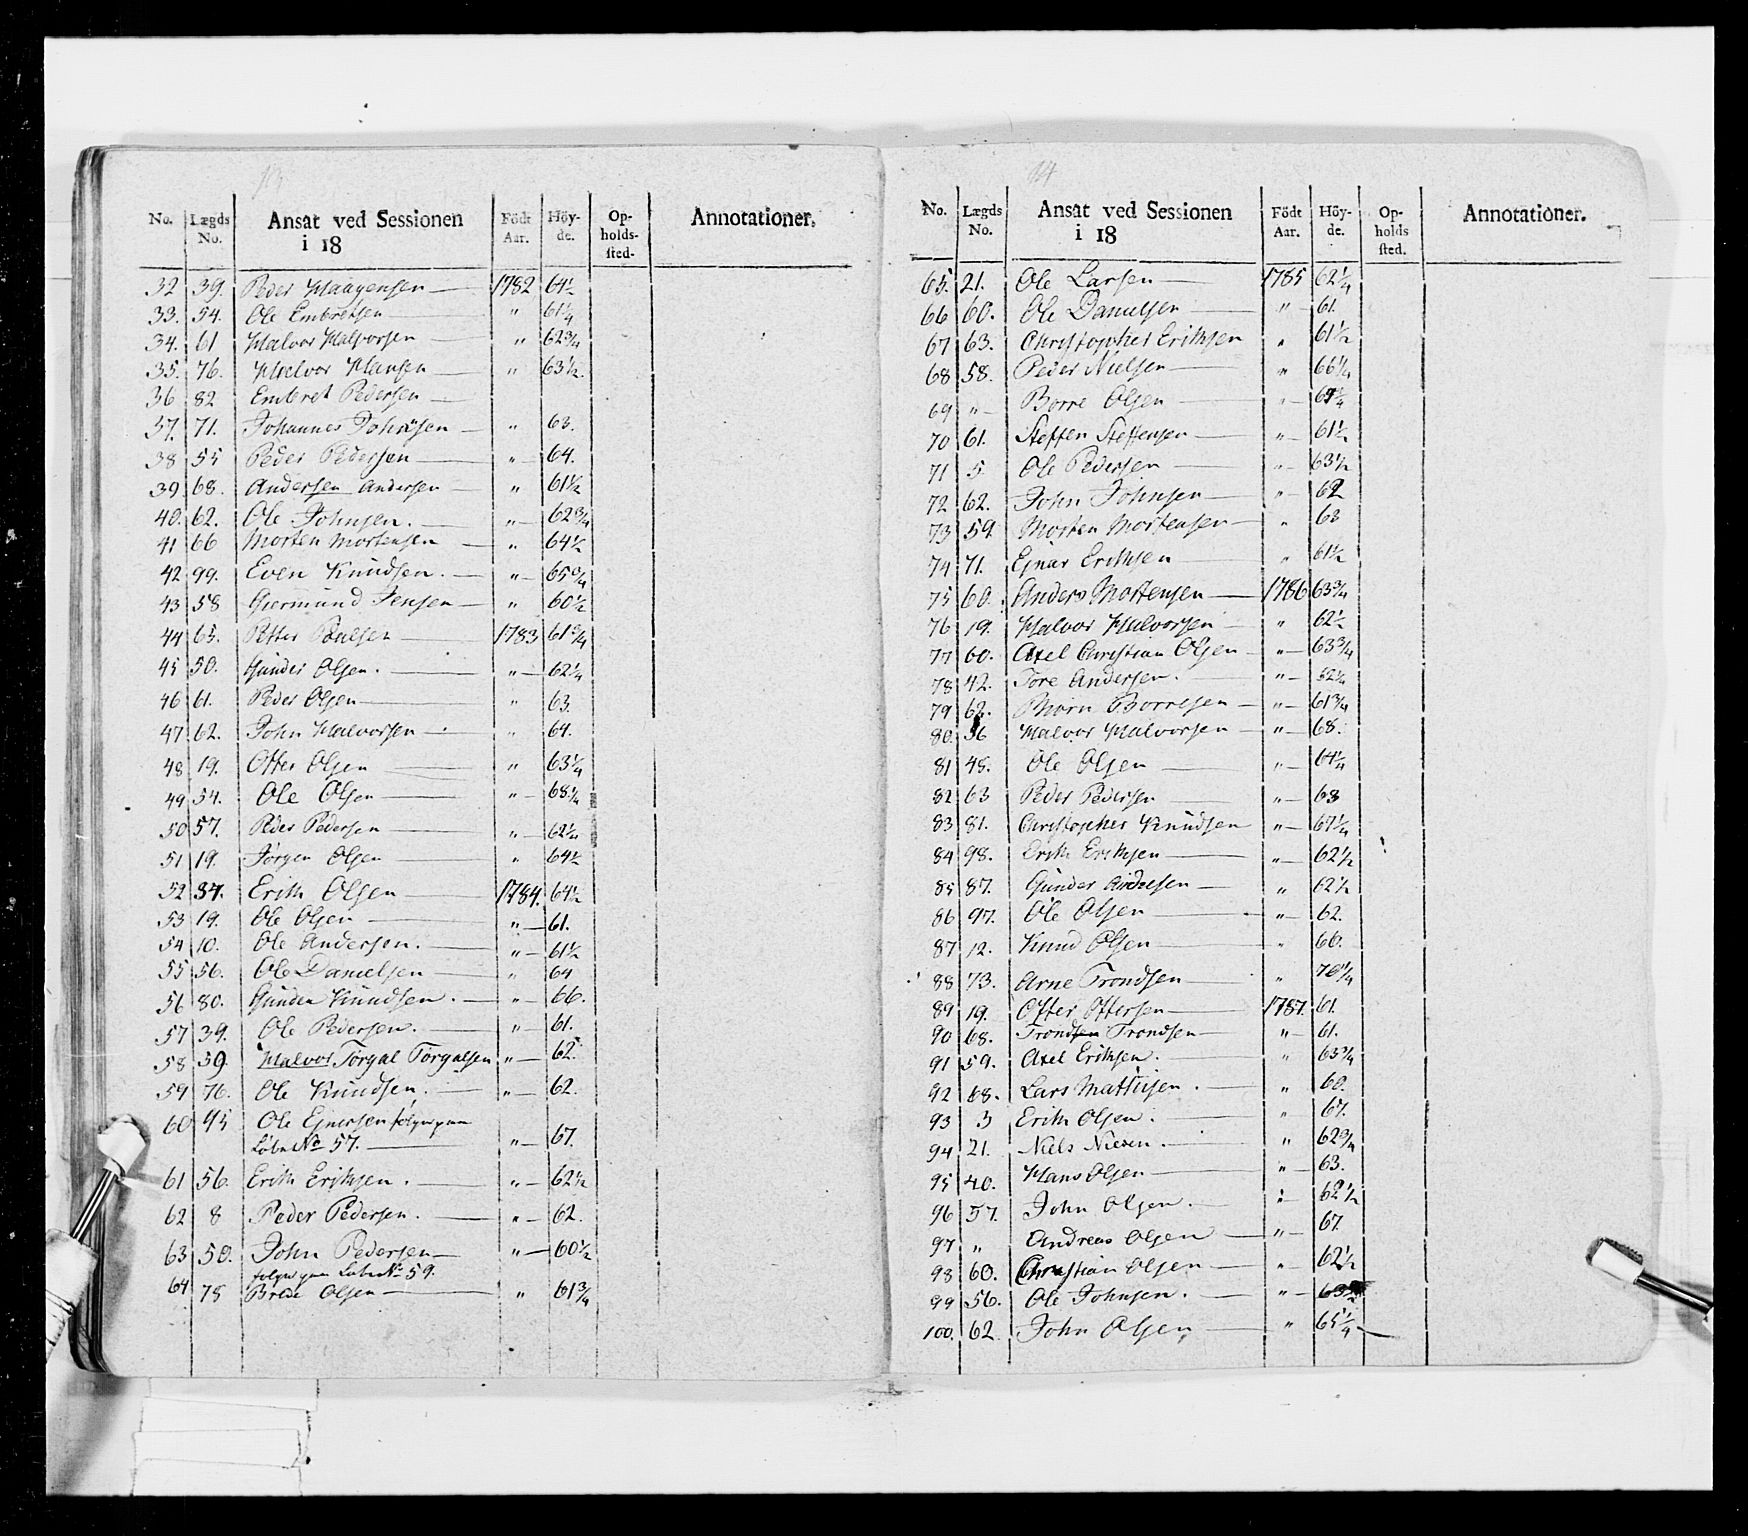 13
No. Lægds No. Ansat ved Sessionen i 18 Födt Aar. Höy-de. Op-holds-sted- Annotationer.
32 39. Peder Haagensen — 1782 64½
33. 54. Ole Embretsen — " 61¼
34. 61 Halvor Halvorsen — " 62¾
35. 76. Halvor Hansen — " 63½.
36 82 Embret Pedersen —
37. 71. Johannes Johnsen — " 63.
38 55 Peder Pedersen — " 64.
39. 68. Andersen Andersen — " 61½
40. 62. Ole Johnsen. — " 62¾
41 66 Morten Mortensen — " 64½
42 99. Even Knudsen. — " 65¾
43 58 Giermund Jensen — " 60½
44 65. Petter Poulsen — 1783 61¾
45 50. Gunder Olsen. — " 62¼
46 61. Peder Olsen — " 63.
47 62. John Halvorsen — " 64.
48 19. Otter Olsen — " 63¼
49 54. Ole Olsen — " 68¼
50 57. Peder Pedersen — " 62¼
51 19. Jörgen Olsen — " 64½
52 34. Erik Olsen — 1784. 64½
53 19. Ole Olsen — " 61.
54 10. Ole Andersen. — " 61½
55 56. Ole Danielsen — " 64
56 80. Gunder Knudsen. — " 66.
57 39. Ole Pedersen. — " 61.
58 39. Halvor Torgal Torgalsen " 62.
59 76. Ole Knudsen. — " 62.
60 95 Ole Ejnersen
No 57. — " 67.
61 56. Erik Eriksen. — " 62½
62 8 Peder Pedersen. — " 62.
63 50. John Pedersen — " 60½
No 59.
64 75 Brede Olsen — " 61¾
14
No. Lægds No. Ansat ved Sessionen i 18 Födt Aar. Höy-de. Op-holds sted. Annotationer.
65. 21. Ole Larsen — 1785 62¼
66 60. Ole Danielsen — " 61.
67 63. Christopher Eriksen " 61½
68 58. Peder Nielsen — " 66¼
69 " Borre Olsen — "
70 61. Steffen Steffensen — " 61½
71 5 Ole Pedersen — " 63½
72 62. John Johnsen — " 62
73 59. Morten Mortensen — " 63
74 71. Ejnar Eriksen — " 61½
75 60. Anders Mortensen — 1786 63¾
76 19. Halvor Halvorsen — " 62½
77 60. Axel Christian Olsen — " 63¾
78 42. Tore Andersen. — "
79 62. Biörn Borresen — " 61¾
80. 36 Halvor Halvorsen — " 68.
81 45. Ole Olsen — " 64¼
82 63 Peder Pedersen — " 63
83 81. Christopher Knudsen " 67¼
84 98. Erik Eriksen — " 62½
85 87. Gunder — " 62½
86 97. Ole Olsen — " 62.
87 12. Knud Olsen — " 66.
88 73. Arne Trondsen — " 70¼
89 19. Otter Ottersen — 1787. 61.
90 68. Trondsen Trondsen — " 61.
91 59. Axel Eriksen. " 63¾
92 68. Lars Mathisen. — " 60.
93 3 Erik Olsen. — " 67.
94 21. Niels Nielsen. — " 62¾
95 40. Hans Olsen — " 63.
96 57. John Olsen. — " 62½
97 " Andreas Olsen — " 67.
98 60. Christian Olsen — " 62½
99 56. Ole Johnsen. — "
100. 62 John Olsen — " 65¼